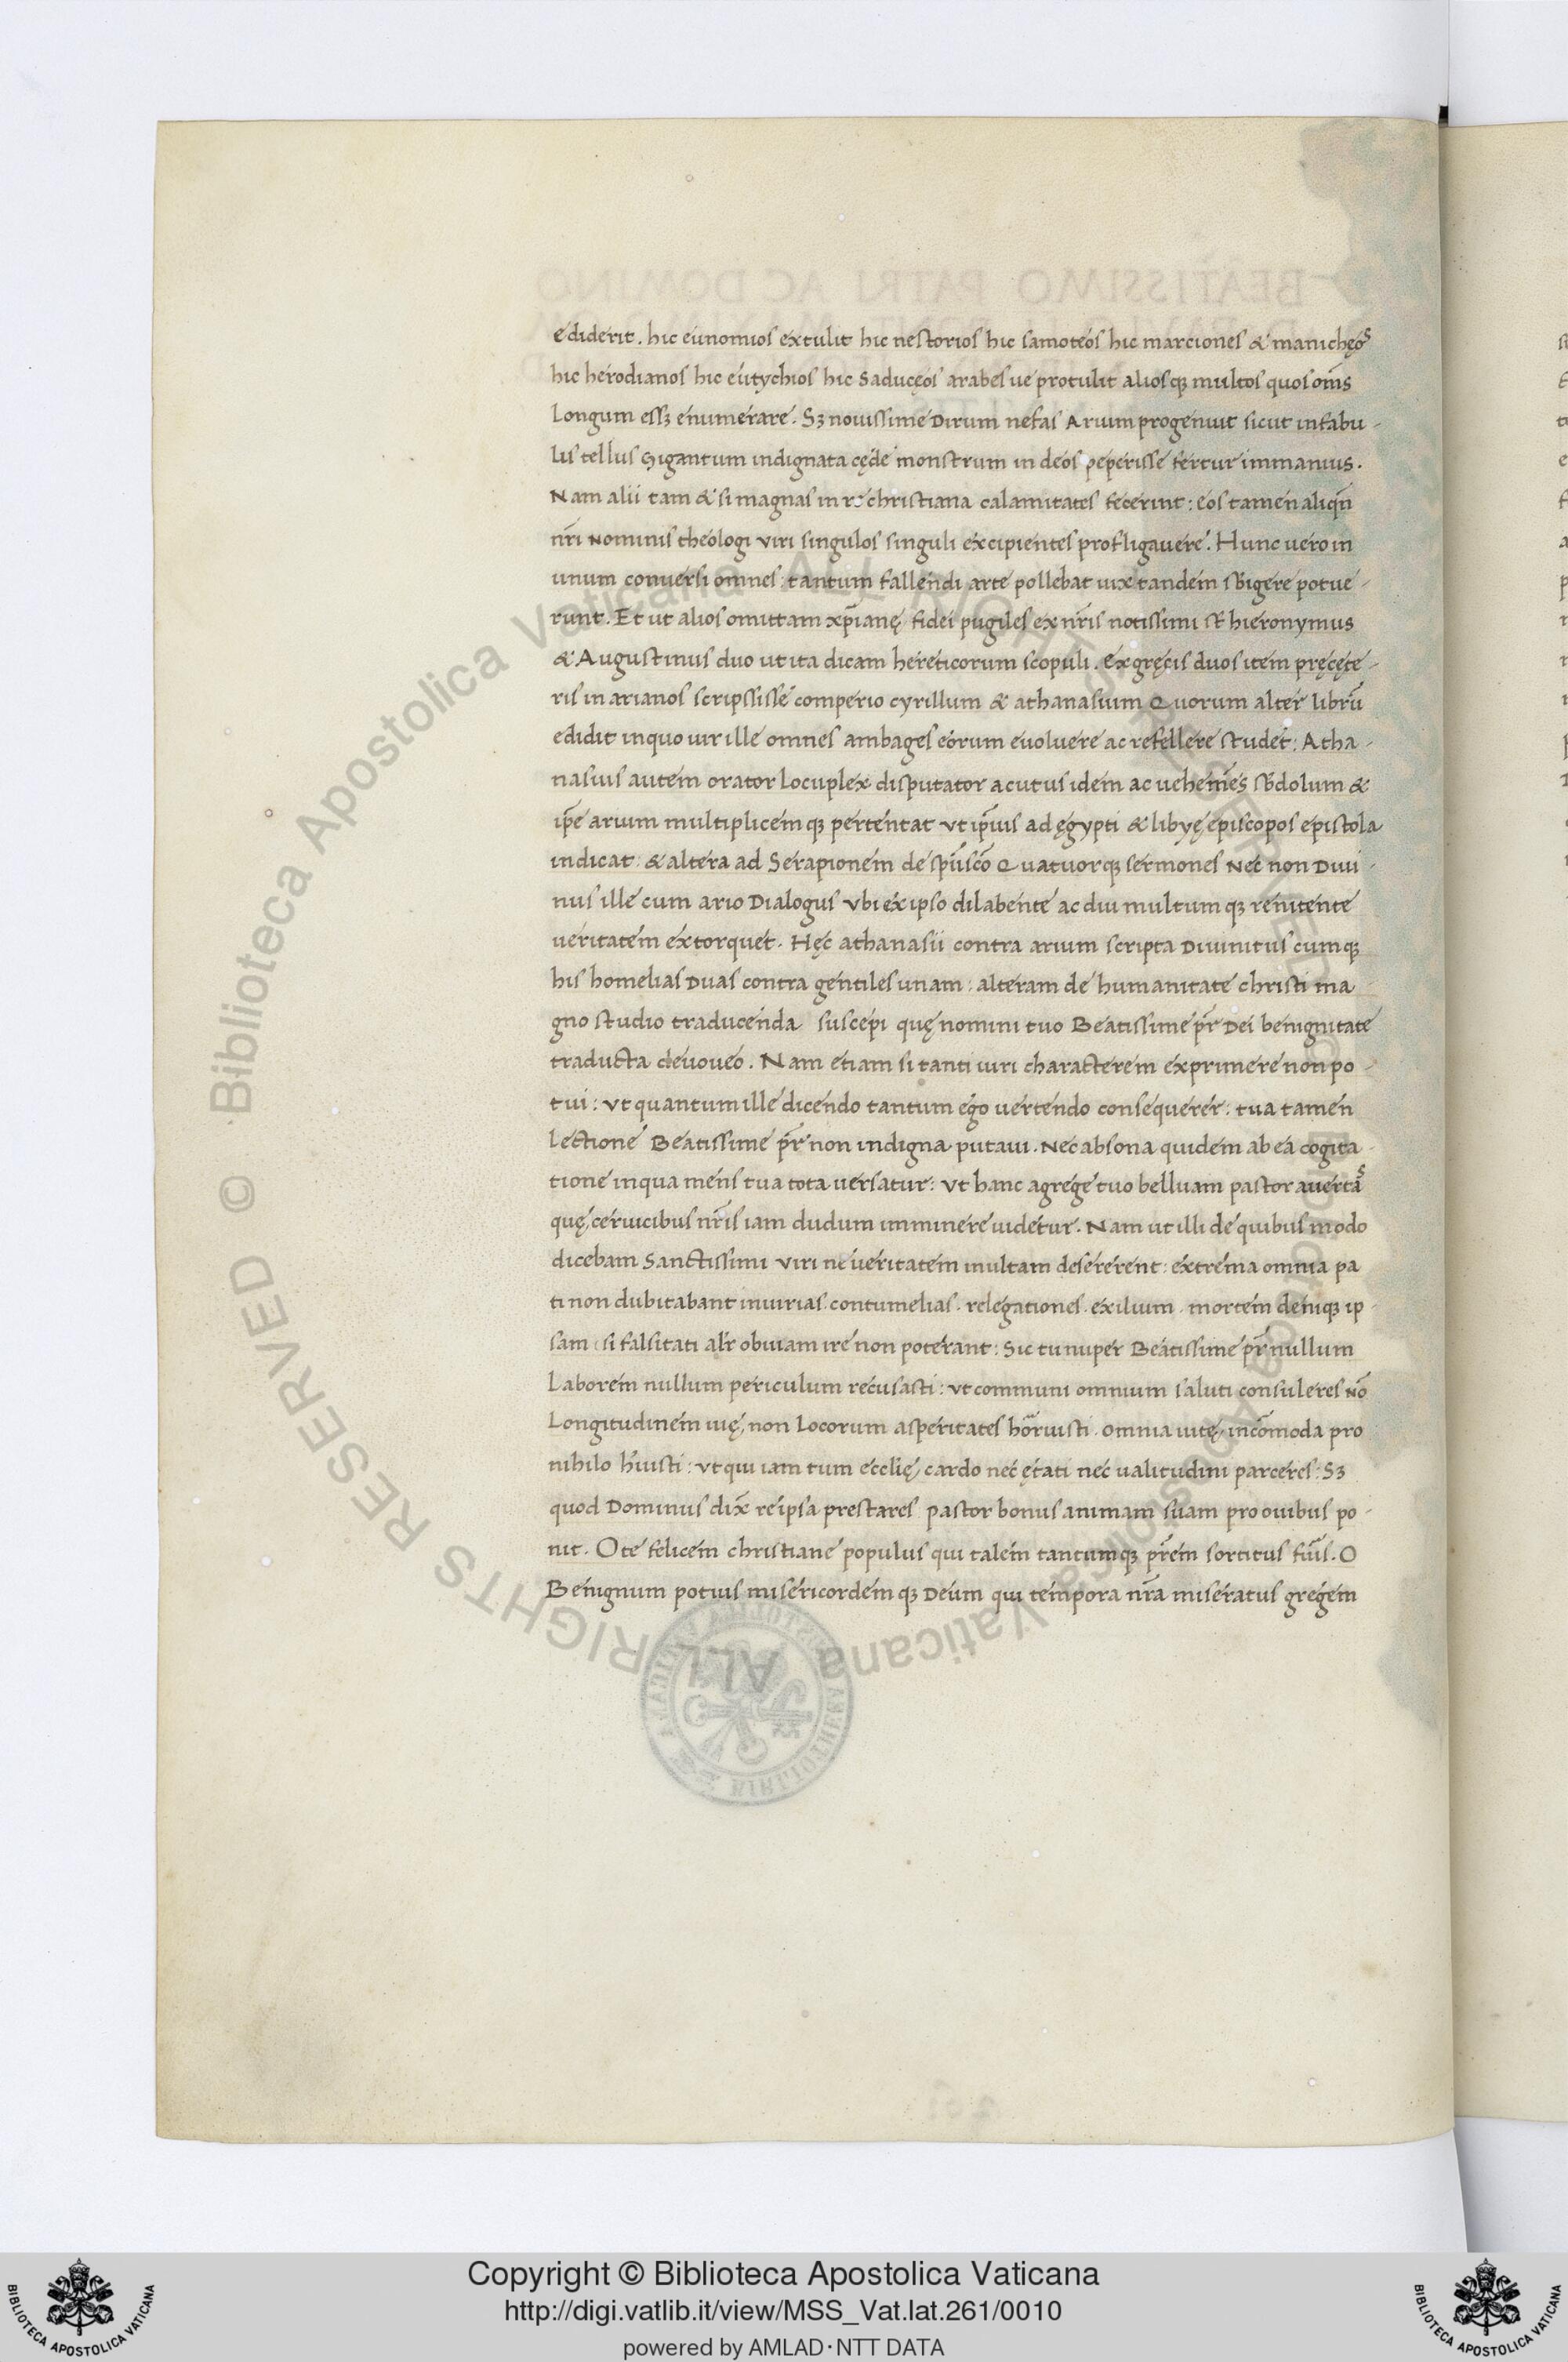 ediderit. hic eunomios extulit hic nestorios hic samoteos hic marciones & manichęos
hic herodianos hic eutychios hic Saducęos arabes ue protulit aliosqꝫ multos quos om̄s
Longum essꝫ enumerare. Sꝫ nouissime Dirum nefas Arium progenuit sicut in fabu-
lis tellus Gigantum indignata cęde monstrum in deos peperisse fertur immanius.
Nam alii tam & si magnas in re christiana calamitates fecerint: eos tamen aliqn̄
nr̄i Nominis theologi viri singulos singuli excipientes profligauere. Hunc uero in
unum conuersi omnes: tantum fallendi arte pollebat uix tandem sb̄igere potue-
runt. Et ut alios omittam xp̄ianę fidei pugiles ex nr̄is notissimi st̄ hieronymus
& Augustinus duo ut ita dicam hereticorum scopuli. ex gręcis duos item pręcęte-
ris in arianos scripsisse comperio cyrillum & athanasium Quorum alter librū
edidit in quo uir ille omnes ambages eorum euoluere ac refellere studet: Atha-
nasius autem orator Locuplex disputator acutus idem ac uehemēs sb̄dolum &
ip̄e arium multiplicemqꝫ pertentat ut ip̄ius ad ęgypti & libyę episcopos epistola
indicat: & altera ad Serapionem de spū scō Quatuorqꝫ sermones Nec non Diui-
nus ille cum ario Dialogus vbi ex ipso dilabente ac diu multumqꝫ renitente
ueritatem extorquet. Hęc athanasii contra arium scripta Diuinitus cumqꝫ
his homelias Duas contra gentiles unam: alteram de humanitate christi ma-
gno studio traducenda suscepi quę nomini tuo Beatissime pr̄ Dei benignitate
traducta deuoueo. Nam etiam si tanti uiri characterem exprimere non po-
tui: vt quantum ille dicendo tantum ego uertendo consequerer: tua tamen
lectione Beatissime pr̄ non indigna putaui. Nec absona quidem ab ea cogita-
tione in qua mens tua tota uersatur: vt hanc agrege tuo belluam pastor auertas
quę ceruicibus nr̄is iam dudum imminere uidetur. Nam ut illi de quibus modo
dicebam Sanctissimi viri ne ueritatem inultam desererent: extrema omnia pa
ti non dubitabant iniurias. contumelias. relegationes. exilium. mortem deniqꝫ ip-
sam: si falsitati alr̄ obuiam ire non poterant: Sic tu nuper Beatissime pr̄ nullum
Laborem nullum periculum recusasti: vt communi omnium saluti consuleres Nō
Longitudinem uię, non Locorum asperitates horruisti. omnia uitę incōmoda pro
nihilo h̄uisti: vt qui iam tum ecclię cardo nec ętati nec ualitudini parceres: Sꝫ
quod Dominus dix̄ re ipsa prestares pastor bonus animam suam pro ouibus po-
nit. O te felicem christiane populus qui talem tantumqꝫ pr̄em sortitus fuīs. O
Benignum potius misericordemqꝫ Deum qui tempora nr̄a miseratus gregem
Copyright © Biblioteca Apostolica Vaticana
http://digi.vatlib.it/view/MSS_Vat.lat.261/0010
powered by AMLAD·NTT DATA
BIBLIOTECA APOSTOLICA VATICANA
BIBLIOTECA APOSTOLICA VATICANA
© Biblioteca Apostolica Vaticana ALL RIGHTS RESERVED
© Biblioteca Apostolica Vaticana ALL RIGHTS RESERVED